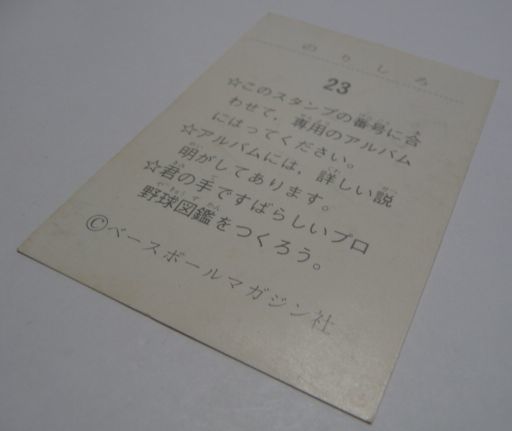 のりしろ
23
☆このスタンプの番号に合
わせて、専用のアルバム
にはってください。
☆アルバムには、詳しい説
明がしてあります。
☆君の手ですばらしいプロ
野球図鑑をつくろう。
©ベースボールマガジン社